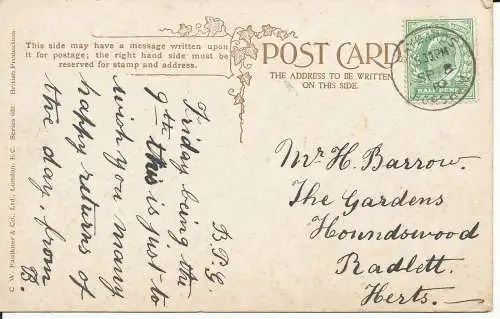 This side may have a message written upon
it for postage; the right hand side must be
reserved for stamp and address.
POST CARD
THE ADDRESS TO BE WRITTEN
ON THIS SIDE.
HALF PENNY
C. W. Faulkner & Co. Ltd., London, E.C. Series
British Production.
B.P.G.
Friday being the
9th this is just to
wish you many
happy returns of
the day, from
B.
Mr H. Barrow.
The Gardens
Houndswood
Radlett.
Herts.